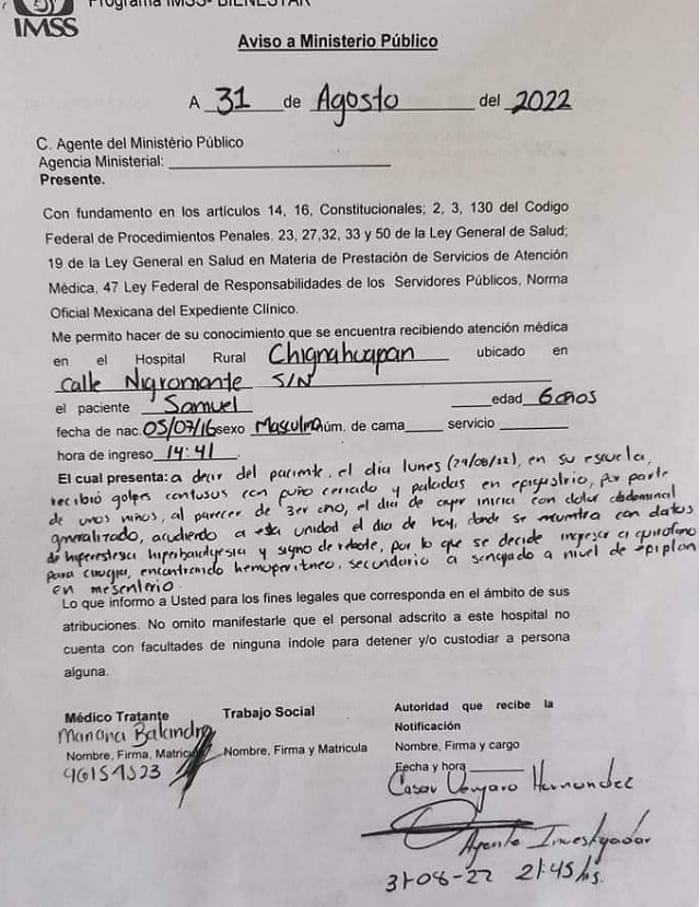 Programa IMSS- BIENESTAR
IMSS
Aviso a Ministerio Público
A 31 de Agosto del 2022
C. Agente del Ministério Público
Agencia Ministerial:
Presente.
Con fundamento en los artículos 14, 16, Constitucionales; 2, 3, 130 del Codigo
Federal de Procedimientos Penales. 23, 27,32, 33 y 50 de la Ley General de Salud;
19 de la Ley General en Salud en Materia de Prestación de Servicios de Atención
Médica, 47 Ley Federal de Responsabilidades de los Servidores Públicos, Norma
Oficial Mexicana del Expediente Clínico.
Me permito hacer de su conocimiento que se encuentra recibiendo atención médica
en el Hospital Rural Chignahuapan ubicado en
Calle Nigromante S/N
el paciente Samuel edad 6 años
fecha de nac. 05/07/16 sexo Masculino núm. de cama servicio
hora de ingreso 14:41
El cual presenta: a decir del paciente, el día lunes (29/08/22), en su escuela,
recibió golpes contusos con puño cerrado y patadas en epigastrio, por parte
de unos niños, al parecer de 3er año, el día de ayer inicia con dolor abdominal
generalizado, acudiendo a esta unidad el día de hoy, donde se encuentra con datos
de hiperestesia hiperbaralgesia y signo de rebote, por lo que se decide ingresar a quirofano
para cirugia, encontrando hemoperitneo, secundario a sangrado a nivel de epiplon
en mesenterio.
Lo que informo a Usted para los fines legales que corresponda en el ámbito de sus
atribuciones. No omito manifestarle que el personal adscrito a este hospital no
cuenta con facultades de ninguna índole para detener y/o custodiar a persona
alguna.
Médico Tratante Trabajo Social Autoridad que recibe la
Notificación
Mariana Balandra
Nombre, Firma, Matricu Nombre, Firma y Matricula Nombre, Firma y cargo
Fecha y hora
Hernandez
Agente Investigador
31-08-22 21:45 hs.